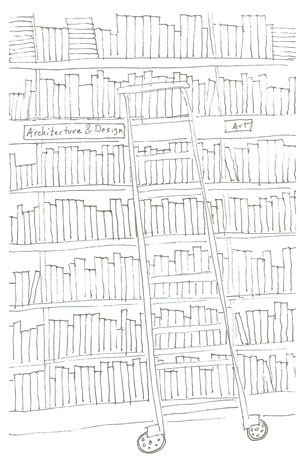 Architecture & Design
Art